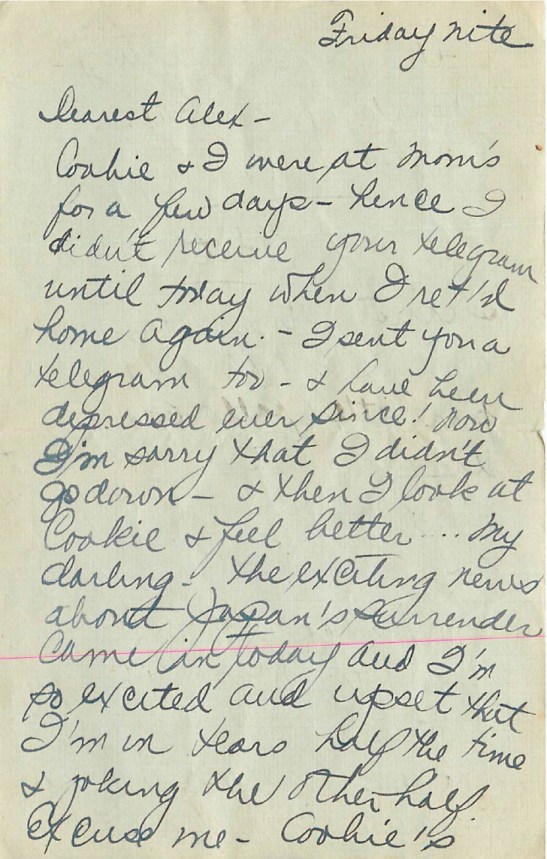 Friday nite
Dearest Alex-
Cookie & I were at Mom's
for a few days - hence I
didn't receive your telegram
until today when I ret'd
home again. - I sent you a
telegram too - & have been
depressed ever since! Now
I'm sorry that I didn't
go down - & then I look at
Cookie & feel better... My
darling - the exciting news
about Japan's surrender
came in today and I'm
so excited and upset that
I'm in tears half the time
& joking the other half.
Excuse me - Cookie's